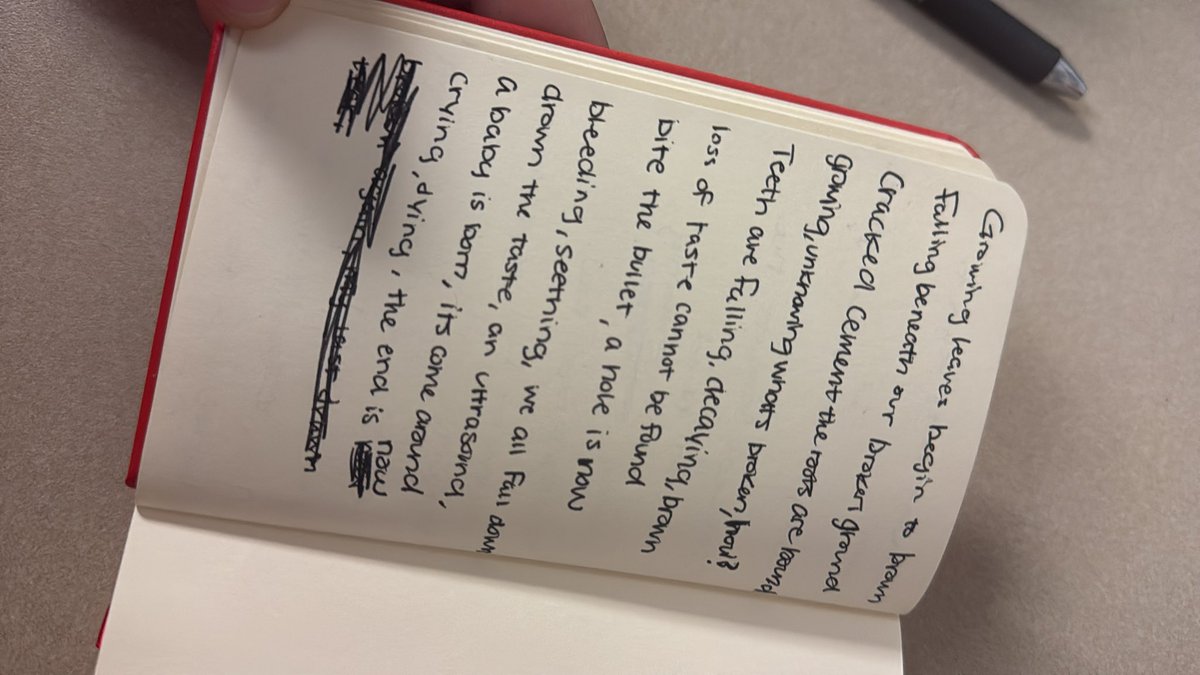 Growing leaves begin to brown
Falling beneath our broken ground
Cracked cement the roots are bound
growing, unknowing whats broken, how?
Teeth are falling, decaying, brown
loss of taste cannot be found
bite the bullet, a hole is now
bleeding, seething, we all fall down
drown the taste, an ultrasound,
a baby is born, its come around
crying, dying, the end is now